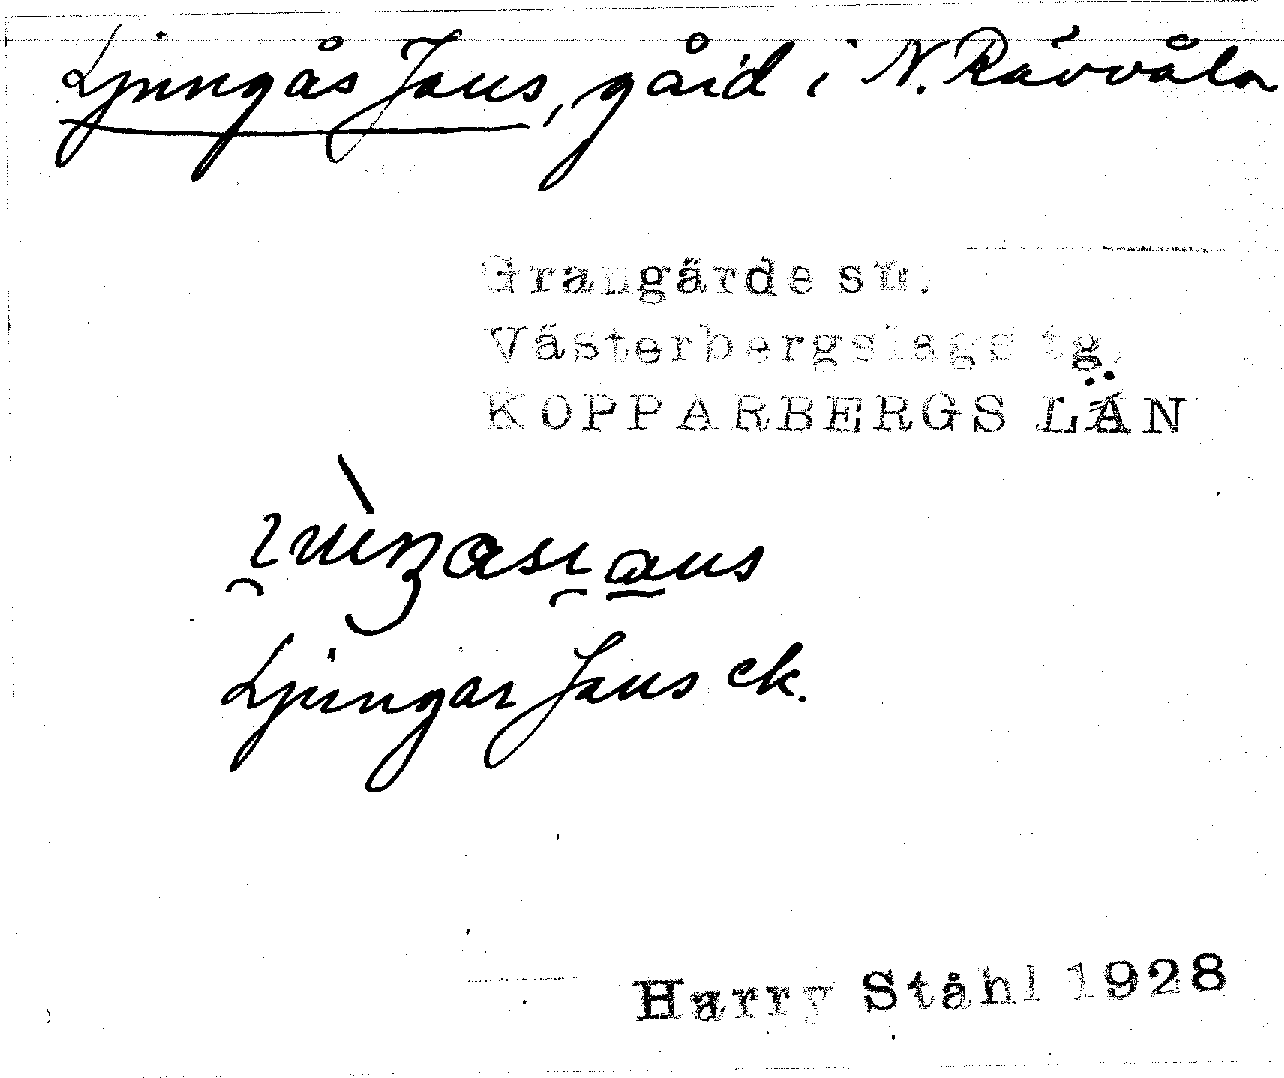 Ljungås Jans, gård i N. Rävvåla
Grangärde sn.
Västerbergslags tg.
KOPPARBERGS LÄN
Ljungar Jans ek.
Harry Ståhl 1928